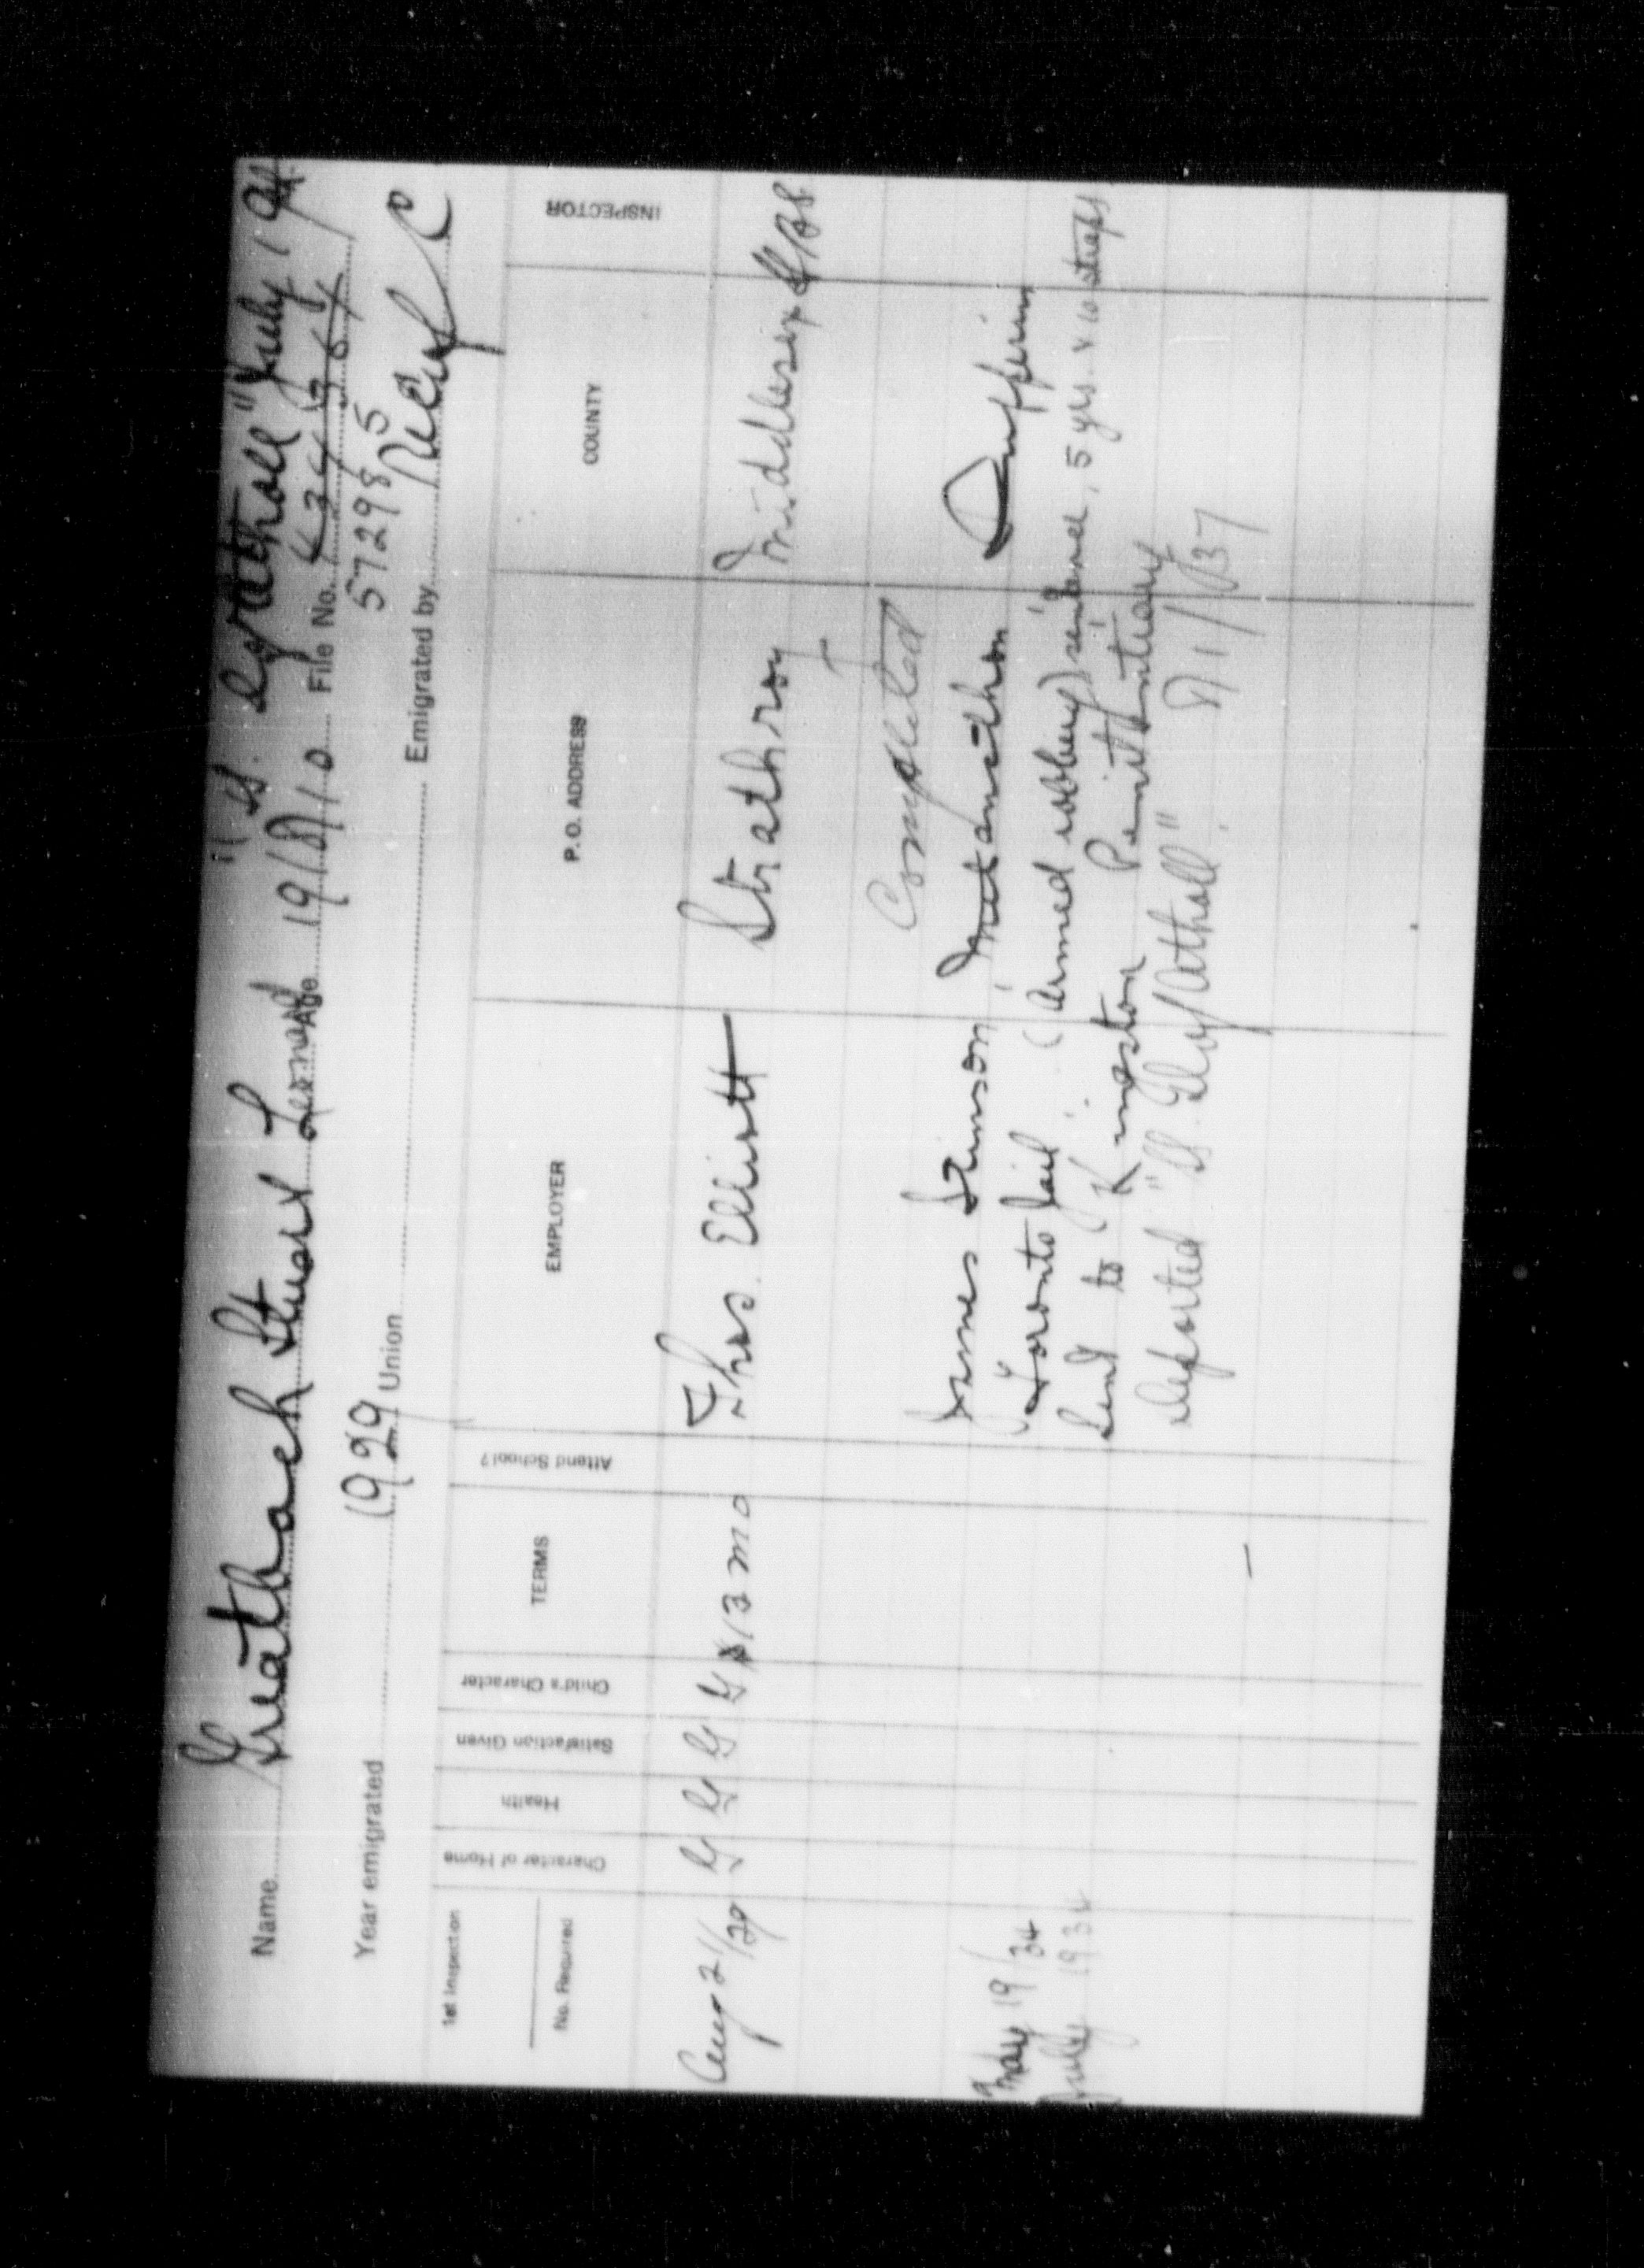 "SS. Letitia
Name Greatbach Stuart Leonard Age 19/8/10 File No.
572985
Year emigrated 1929 Union Emigrated by
1st Inspection
No. Required
Character of Home
Health
Satisfaction Given
Child's Character
TERMS
Attend School?
EMPLOYER
P.O. ADDRESS
COUNTY
INSPECTOR
Aug 21/29 G G G G 12 mo Thos. Elliott Strathroy Middlesex
Completed
May 19/34 James Stinson Dufferin
July 1934 Toronto Jail (Armed robbery) 5 yrs. 10 straps
Sent to Kingston Penitentiary
Deported 1/37